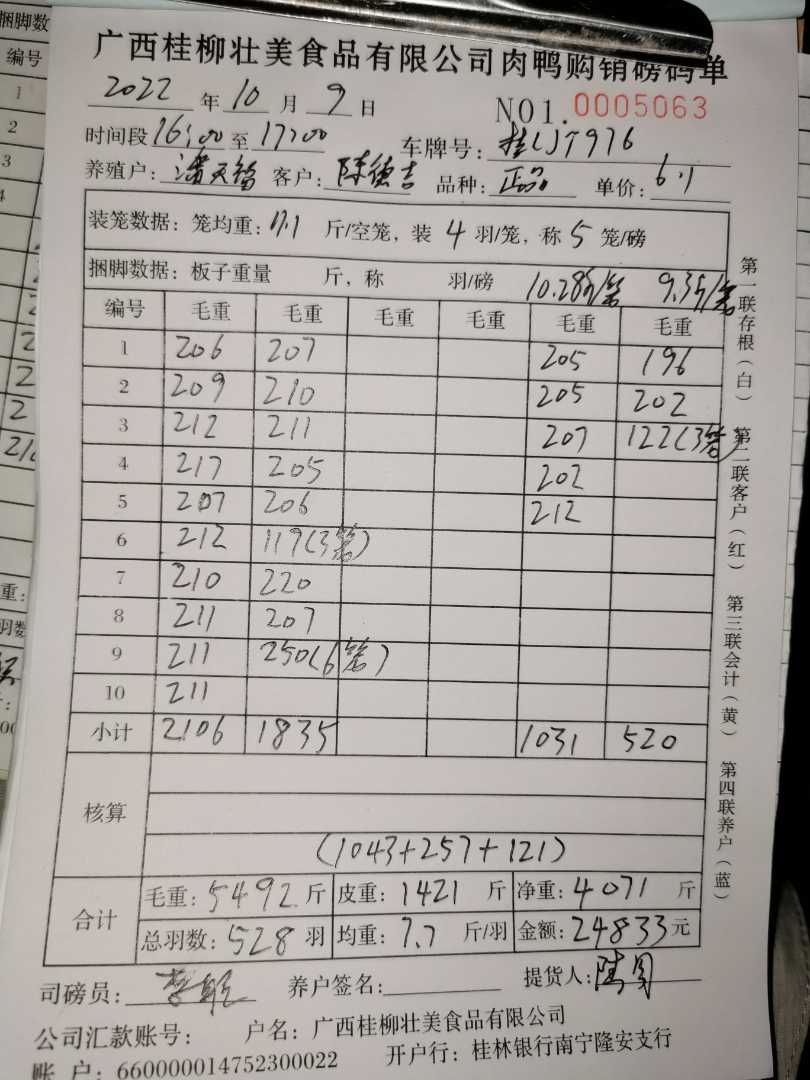 广西桂柳壮美食品有限公司肉鸭购销磅码单
2022 年 10 月 9 日 NO1.0005063
时间段 16:00 至 17:00 车牌号:
养殖户: 客户: 陈德吉 品种: 正品 单价: 6.1
装笼数据: 笼均重: 17.1 斤/空笼, 装 4 羽/笼, 称 5 笼/磅
捆脚数据: 板子重量 斤, 称 羽/磅 10.28斤/笼 9.3斤/笼
编号 毛重 毛重 毛重 毛重 毛重 毛重
1 206 207 205 196
2 209 210 205 202
3 212 211 207 122(3笼)
4 217 205 202
5 207 206 212
6 212 119(3笼)
7 210 220
8 211 207
9 211 250(6笼)
10 211
小计 2106 1835 1031 520
核算
(1043+257+121)
合计 毛重: 5492 斤 皮重: 1421 斤 净重: 4071 斤
总羽数: 528 羽 均重: 7.7 斤/羽 金额: 24833 元
司磅员: 养户签名: 提货人:
公司汇款账号: 户名: 广西桂柳壮美食品有限公司
账 户: 660000014752300022 开户行: 桂林银行南宁隆安支行
第一联存根(白) 第二联客户(红) 第三联会计(黄) 第四联养户(蓝)
捆脚数
编号
1
2
3